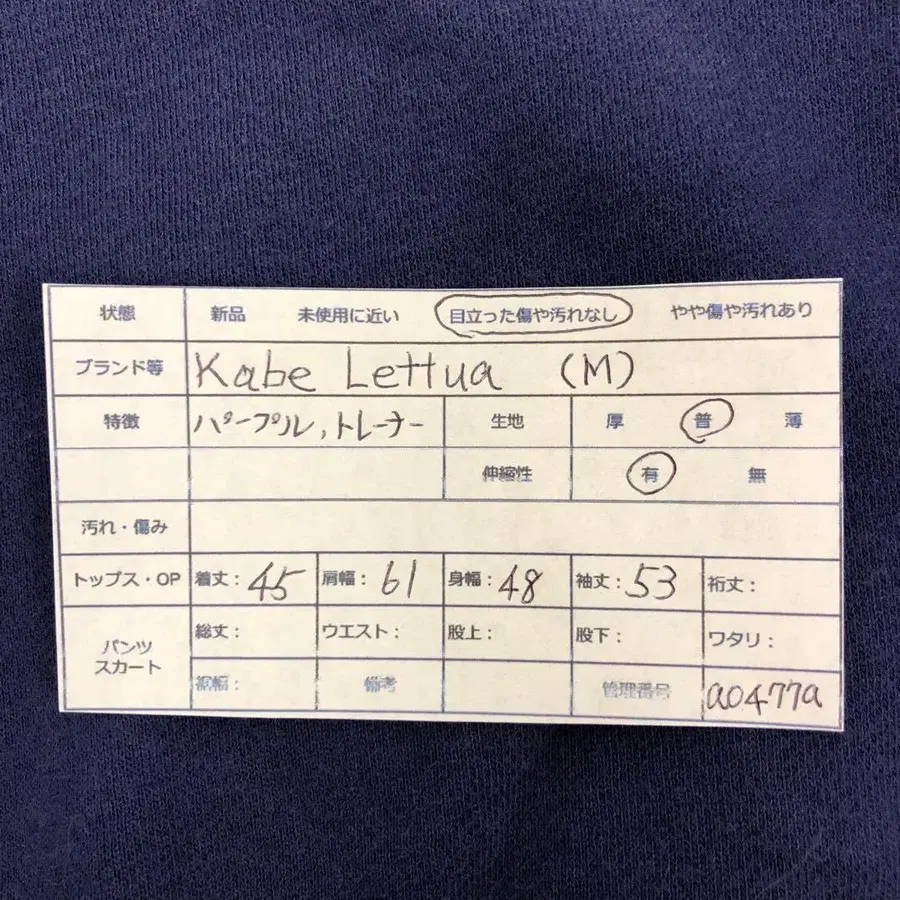 状態 新品 未使用に近い 目立った傷や汚れなし やや傷や汚れあり
ブランド等 Kabe Lettua (M)
特徴 パープル,トレーナー 生地 厚 普 薄
伸縮性 有 無
汚れ・傷み
トップス・OP 着丈: 45 肩幅: 61 身幅: 48 袖丈: 53 裄丈:
パンツ スカート 総丈: ウエスト: 股上: 股下: ワタリ:
裾幅: 備考 管理番号 a0477a